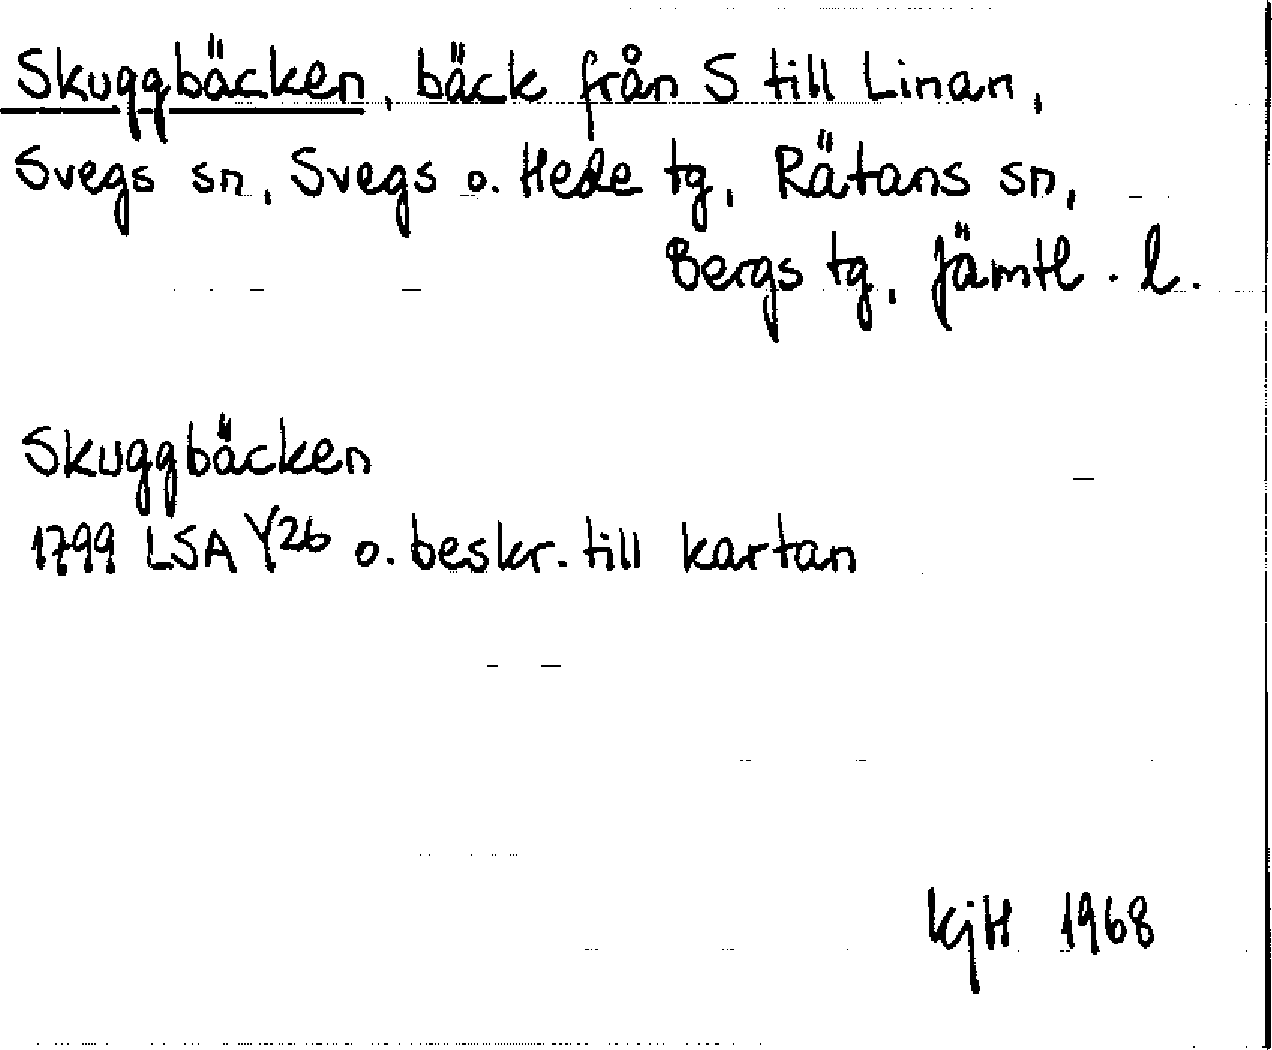 Skuggbäcken, bäck från S till Linan,
Svegs sn, Svegs o. Hede tg, Rätans sn,
Bergs tg, Jämtl. l.
Skuggbäcken
1799 LSA Y26 o. beskr. till kartan
KjH 1968